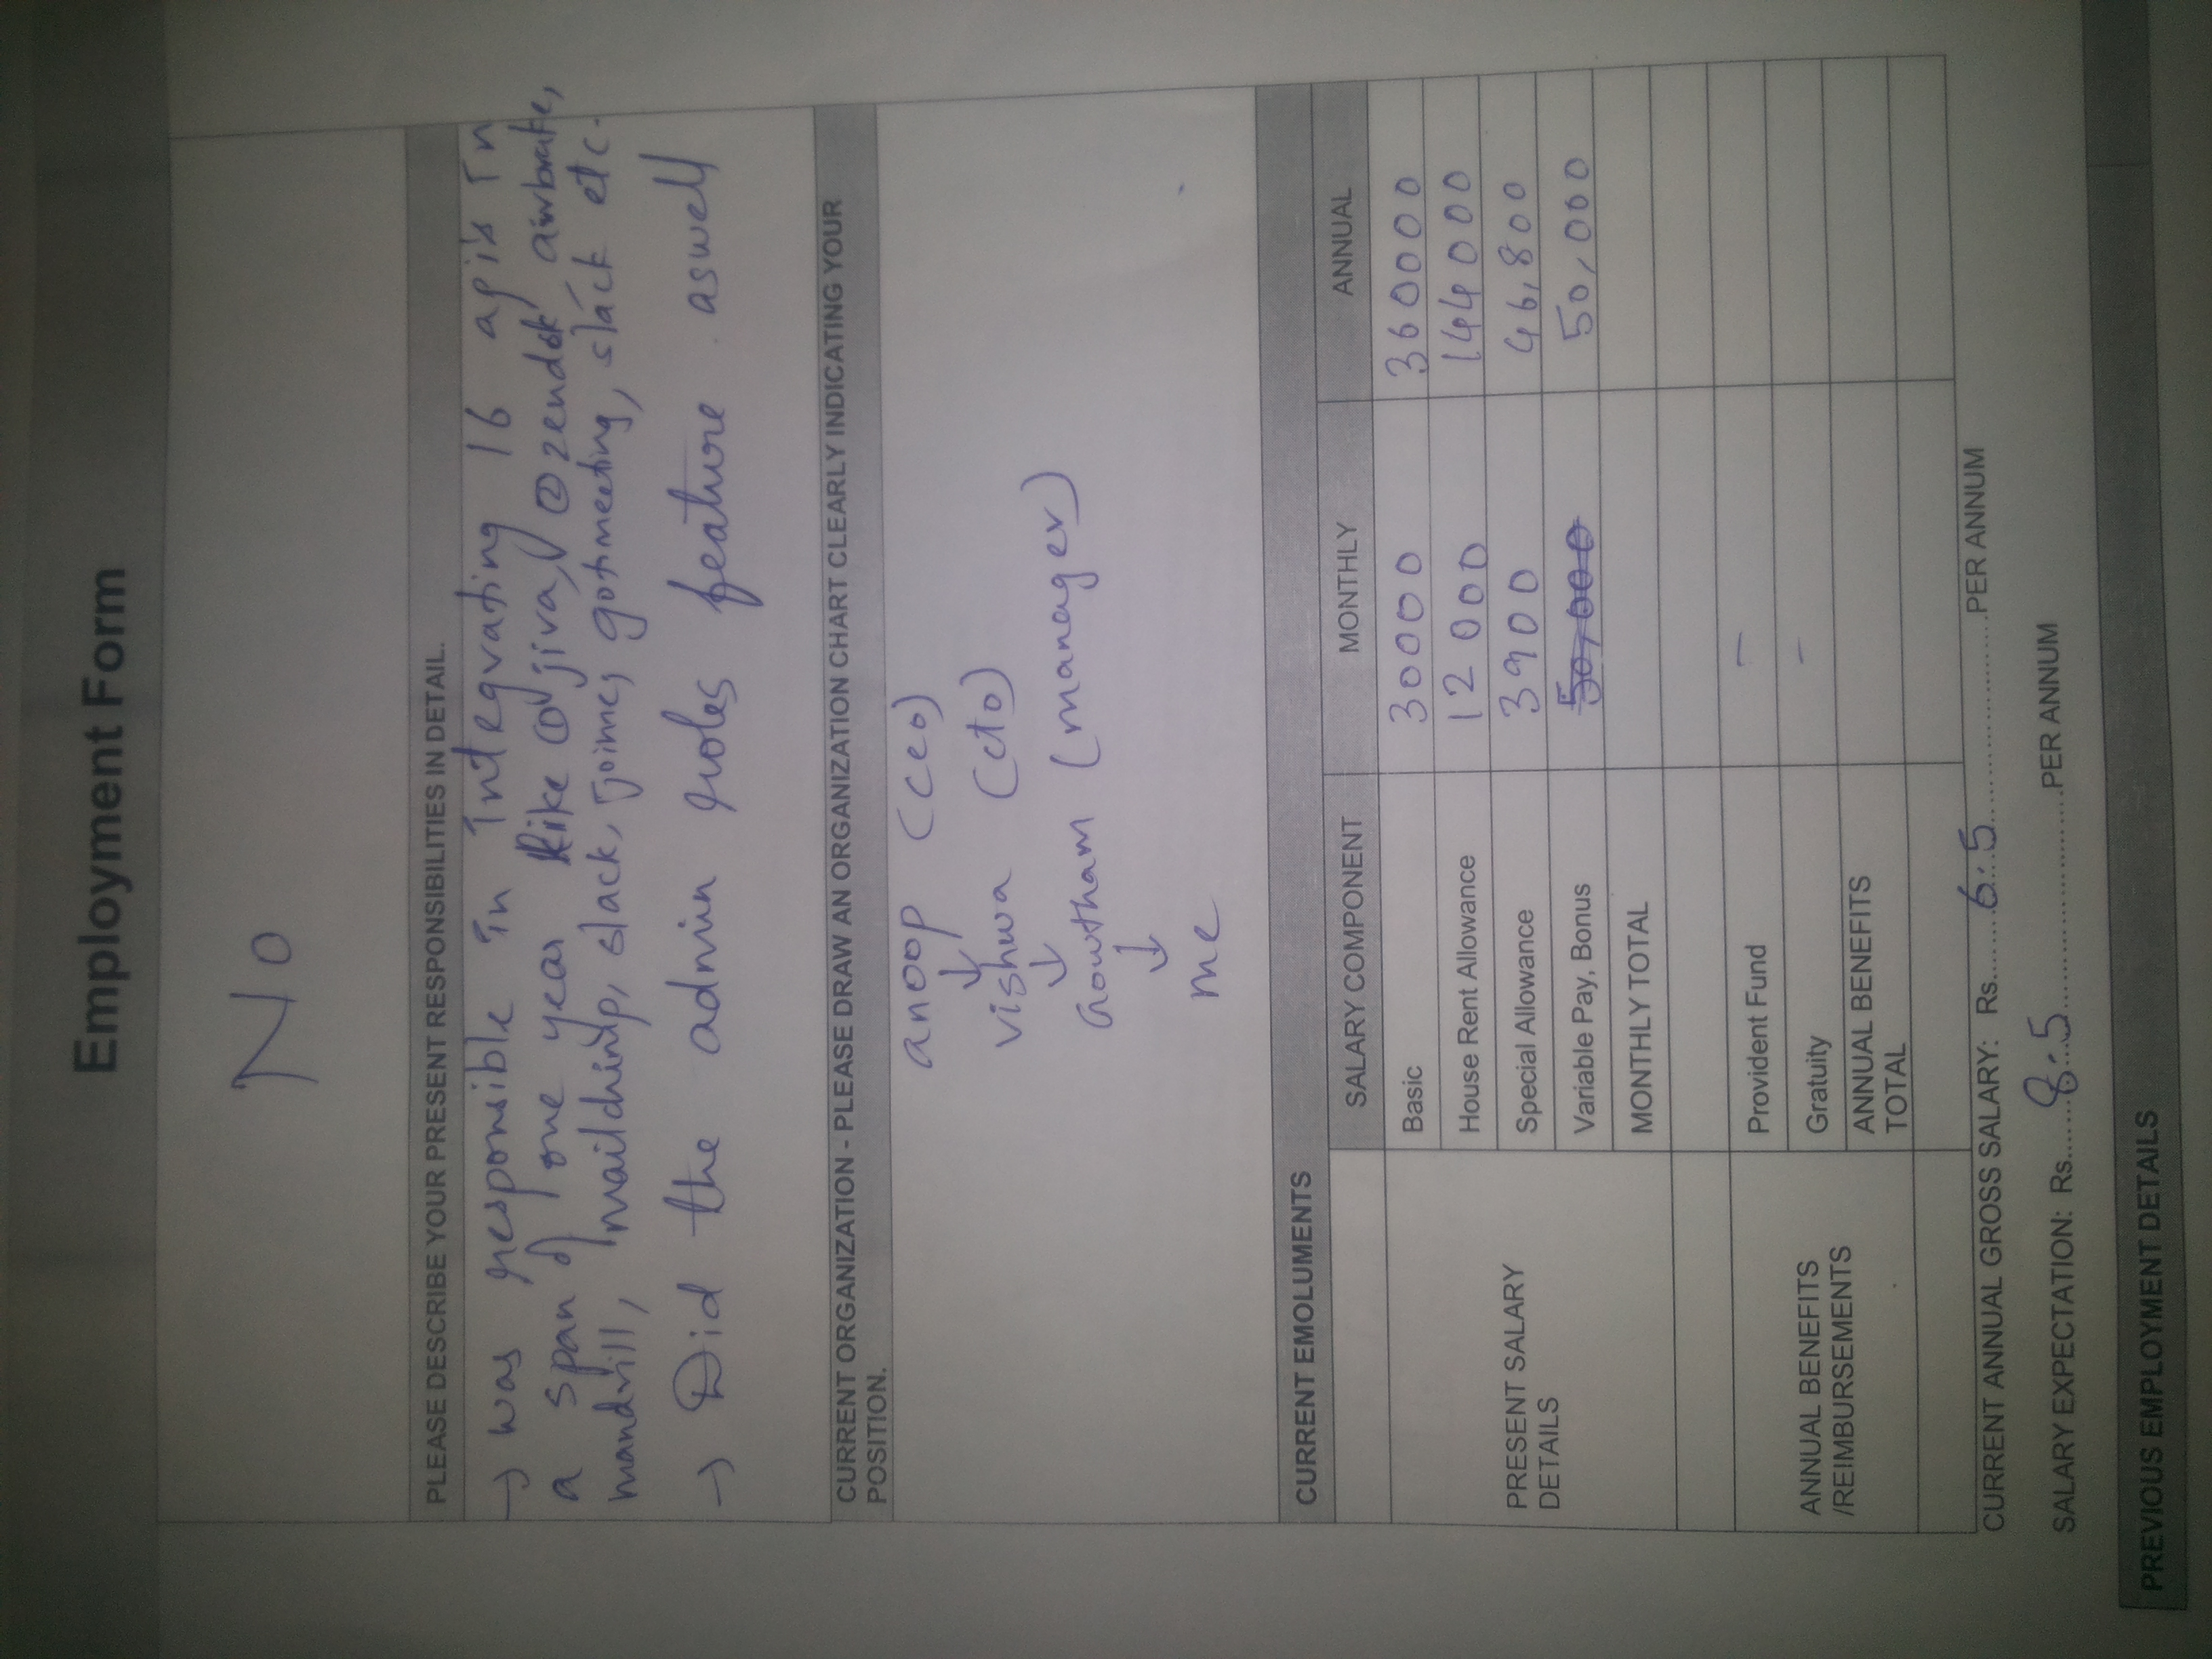 Employment Form
No
PLEASE DESCRIBE YOUR PRESENT RESPONSIBILITIES IN DETAIL.
→ was responsible in integrating 16 api's in
a span of one year like ① jira, ② zendesk, airbrake,
mandrill, mailchimp, slack, joinme, gotmeeting, slack etc.
→ Did the admin roles feature aswell
CURRENT ORGANIZATION - PLEASE DRAW AN ORGANIZATION CHART CLEARLY INDICATING YOUR
POSITION.
anoop (ceo)
↓
vishwa (cto)
↓
Gowtham (manager)
↓
me
CURRENT EMOLUMENTS
SALARY COMPONENT MONTHLY ANNUAL
PRESENT SALARY
DETAILS
Basic 30000 360000
House Rent Allowance 12000 144000
Special Allowance 3900 46,800
Variable Pay, Bonus 50,000 50,000
MONTHLY TOTAL
ANNUAL BENEFITS
/REIMBURSEMENTS
Provident Fund –
Gratuity –
ANNUAL BENEFITS
TOTAL
CURRENT ANNUAL GROSS SALARY: Rs......6.5....................PER ANNUM
SALARY EXPECTATION: Rs......8.5....................PER ANNUM
PREVIOUS EMPLOYMENT DETAILS